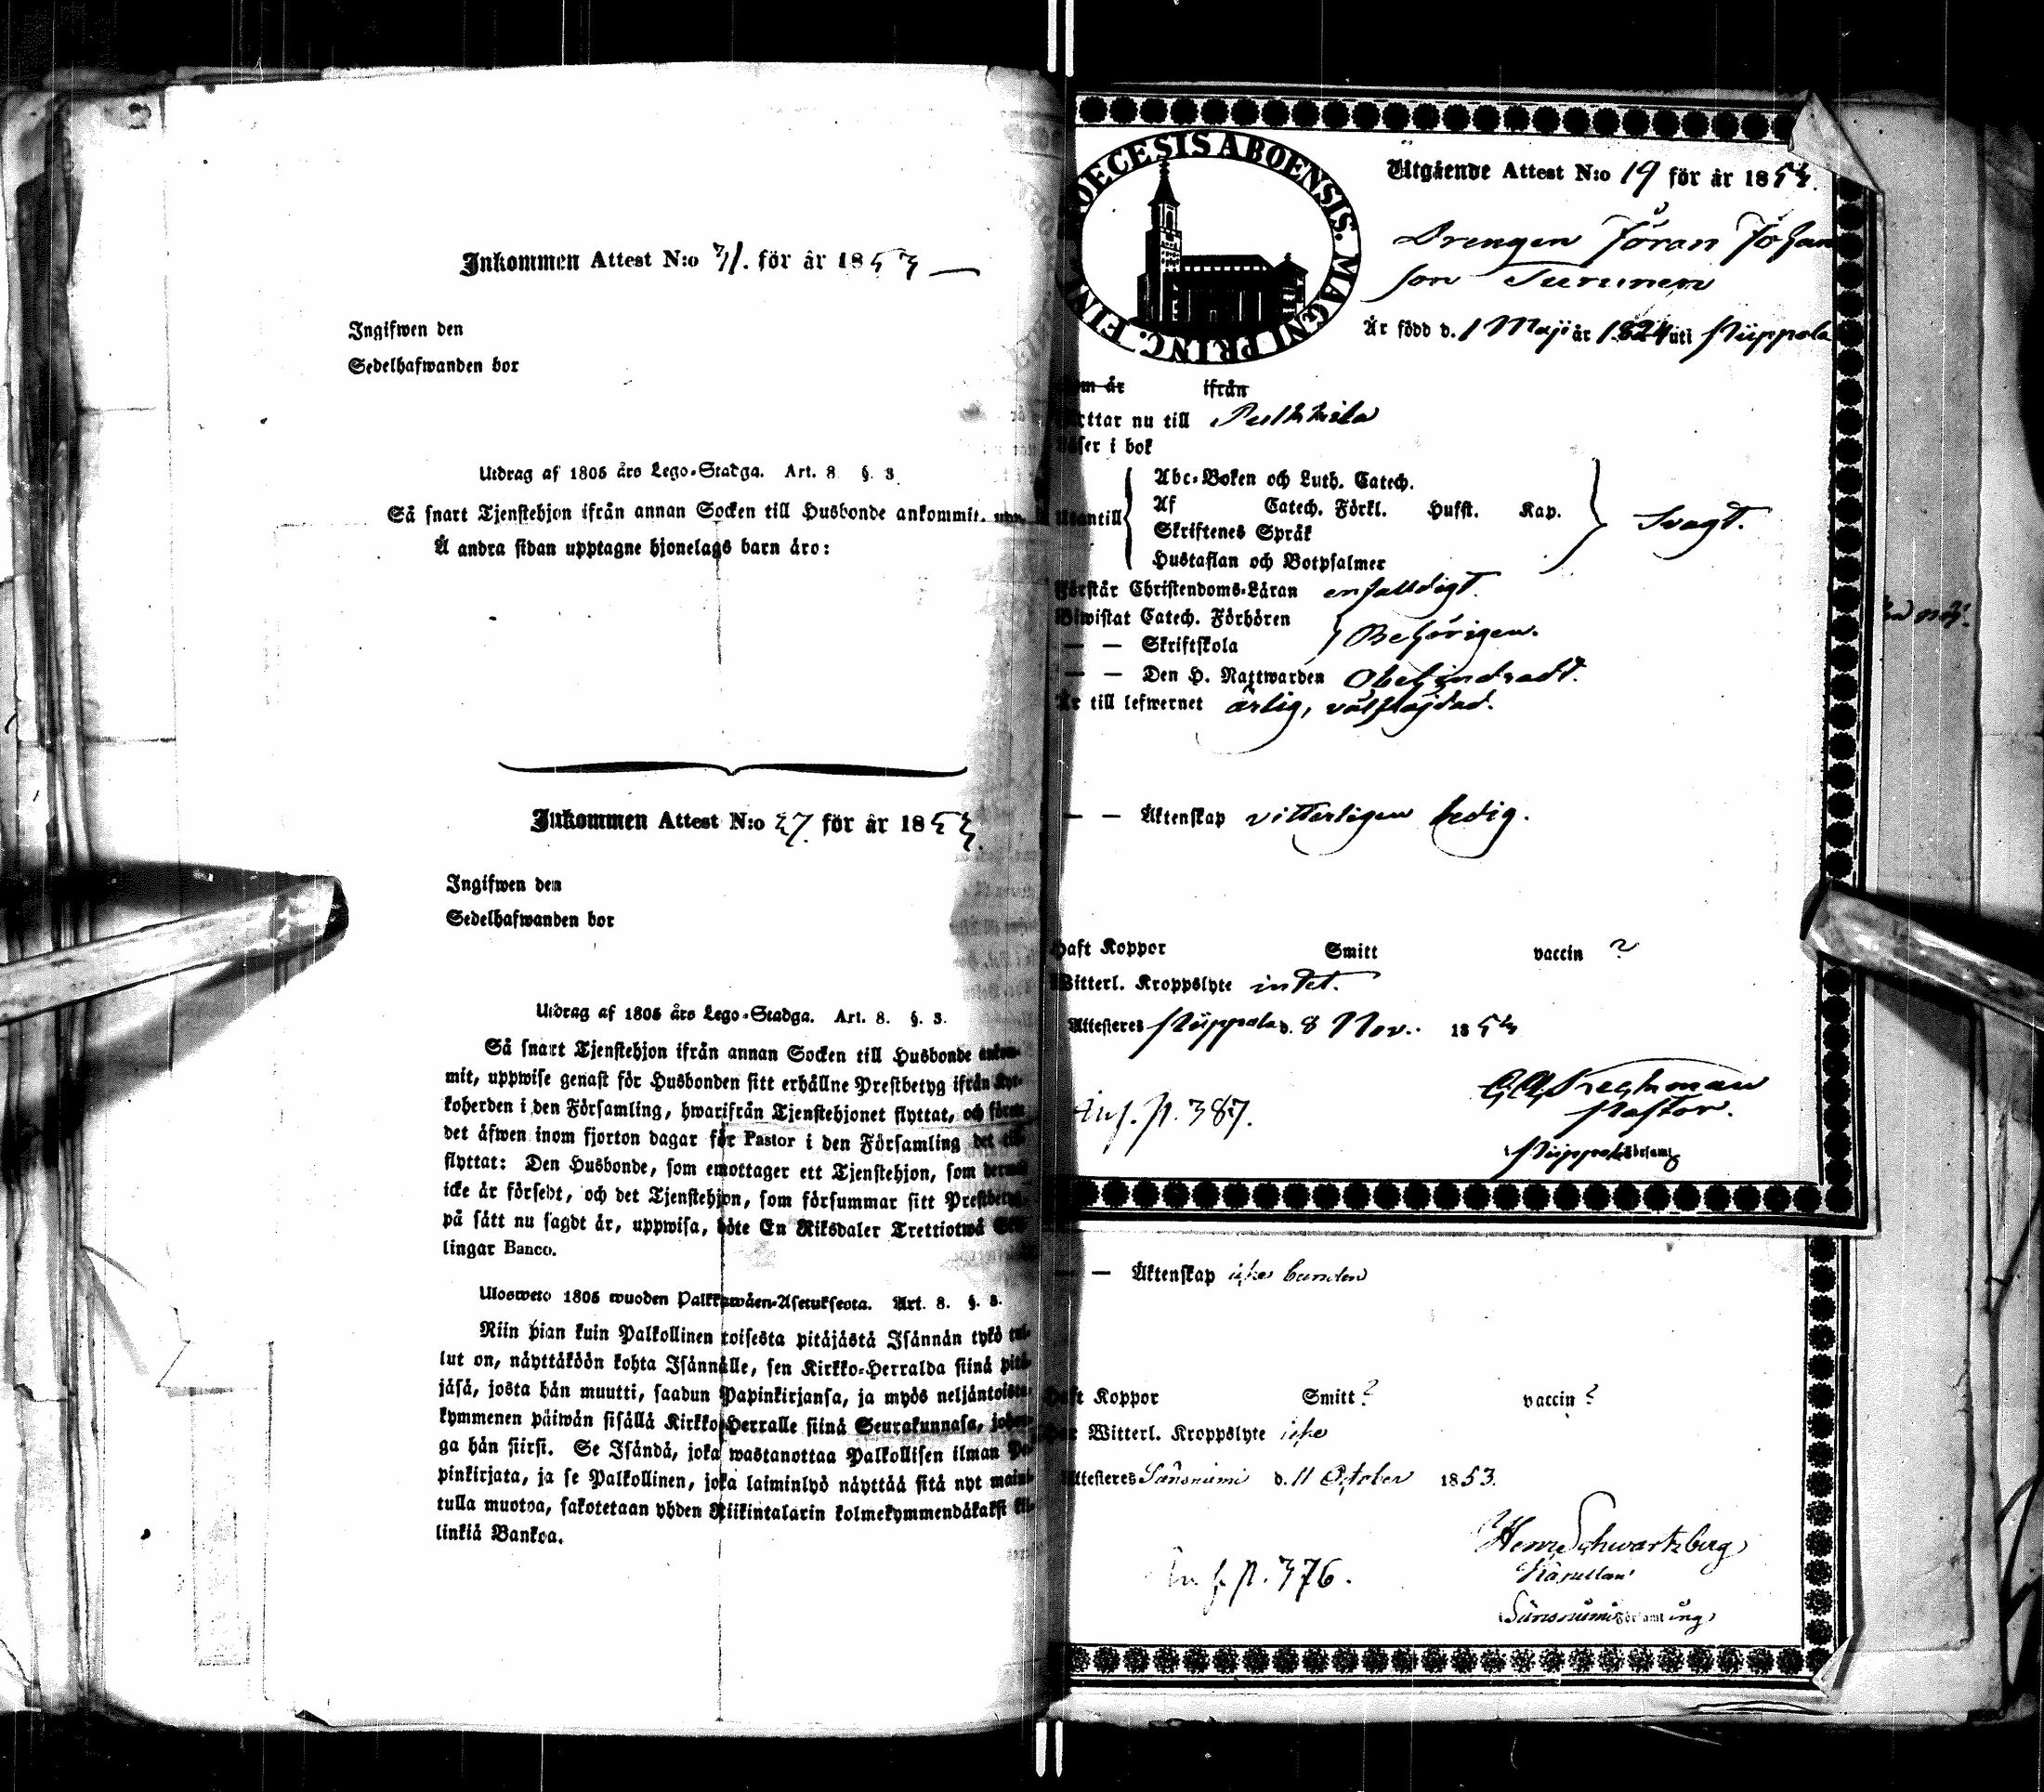 Inkommen Attest N:o 31. för år 1853
Ingifwen den
Sedelhafwanden bor
Utdrag af 1805 års Lego-Stadga. Art. 8 §. 3.
Så snart Tjenstehjon ifrån annan Socken till Husbonde ankommit.
Å andra sidan upptagne hjonelags barn äro:
Inkommen Attest N:o 37. för år 1853.
Ingifwen den
Sedelhafwanden bor
Utdrag af 1805 års Lego-Stadga. Art. 8. §. 3.
Så snart Tjenstehjon ifrån annan Socken till Husbonde ankom-
mit, uppwise genast för Husbonden sitt erhållne Prestbetyg ifrån Kyr-
koherden i den Församling, hwarifrån Tjenstehjonet flyttat, och förete
det äfwen inom fjorton dagar för Pastor i den Församling det till-
flyttat: Den Husbonde, som emottager ett Tjenstehjon, som dermed
icke är försedt, och det Tjenstehjon, som försummar sitt Prestbetyg,
på sätt nu sagdt är, uppwisa, böte En Riksdaler Trettiotwå Skil-
lingar Banco.
Ulosweto 1805 wuoden Palkkawäen-Asetuksesta. Art. 8. §. 3.
Niin pian kuin Palkollinen toisesta pitäjästä Isännän tykö tul-
lut on, näyttäköön kohta Isännälle, sen Kirkko-Herralda siinä pitä-
jäsä, josta hän muutti, saadun Papinkirjansa, ja myös neljäntoista-
kymmenen päiwän sisällä Kirkko-Herralle siinä Seurakunnasa, johon-
ga hän siirsi. Se Isändä, joka wastanottaa Palkollisen ilman Pa-
pinkirjata, ja se Palkollinen, joka laiminlyö näyttää sitä nyt maini-
tulla muotoa, sakotetaan yhden Riikintalarin kolmekymmendäkaksi kil-
linkiä Bankoa.
DIOECESIS ABOENSIS. MAGNI PRINC. FINL.
Utgående Attest N:o 19 för år 1853.
Drengen Jöran Johan
son Turunen
Är född d. 1 Maji år 1824 uti Piippola
som är ifrån
flyttar nu till Pulkkila
Läser i bok
Utantill
Abc-Boken och Luth. Catech.
Af Catech. Förkl. Hufst. Kap.
Skriftenes Språk
Hustaflan och Botpsalmer
Svagt.
Förstår Christendoms-Läran enfalldigt.
Biwistat Catech. Förhören
— — Skriftskola
Behörigen.
— — Den H. Nattwarden Obehindradt.
Är till lefwernet ärlig, välfräjdad.
— — Äktenskap vitterligen ledig.
Haft Koppor Smitt vaccin ?
Witterl. Kroppslyte intet.
Attesteres Piippola d. 8 Nov. 1853
Pastor.
Inf. p. 387.
Piippola Församl
— — Äktenskap icke bunden
Haft Koppor Smitt ? vaccin ?
Har Witterl. Kroppslyte icke
Attesteres Säresniemi d. 11 October 1853.
Henr Schwartzberg
Kapellan
Inf. p. 376.
Säresniemi Församl ing